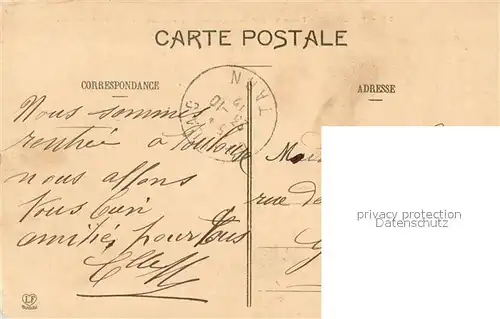 CARTE POSTALE
CORRESPONDANCE
ADRESSE
TARN
Nous sommes
rentrée à Toulouse
nous allons
Tous bien
amitiés pour Tous
rue de
privacy protection
Datenschutz
LF